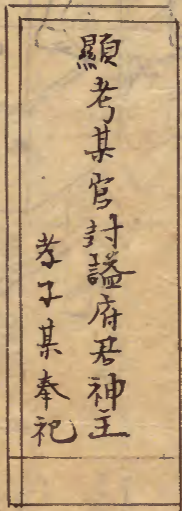 顯考某官封謚府君神主
孝子某奉祀